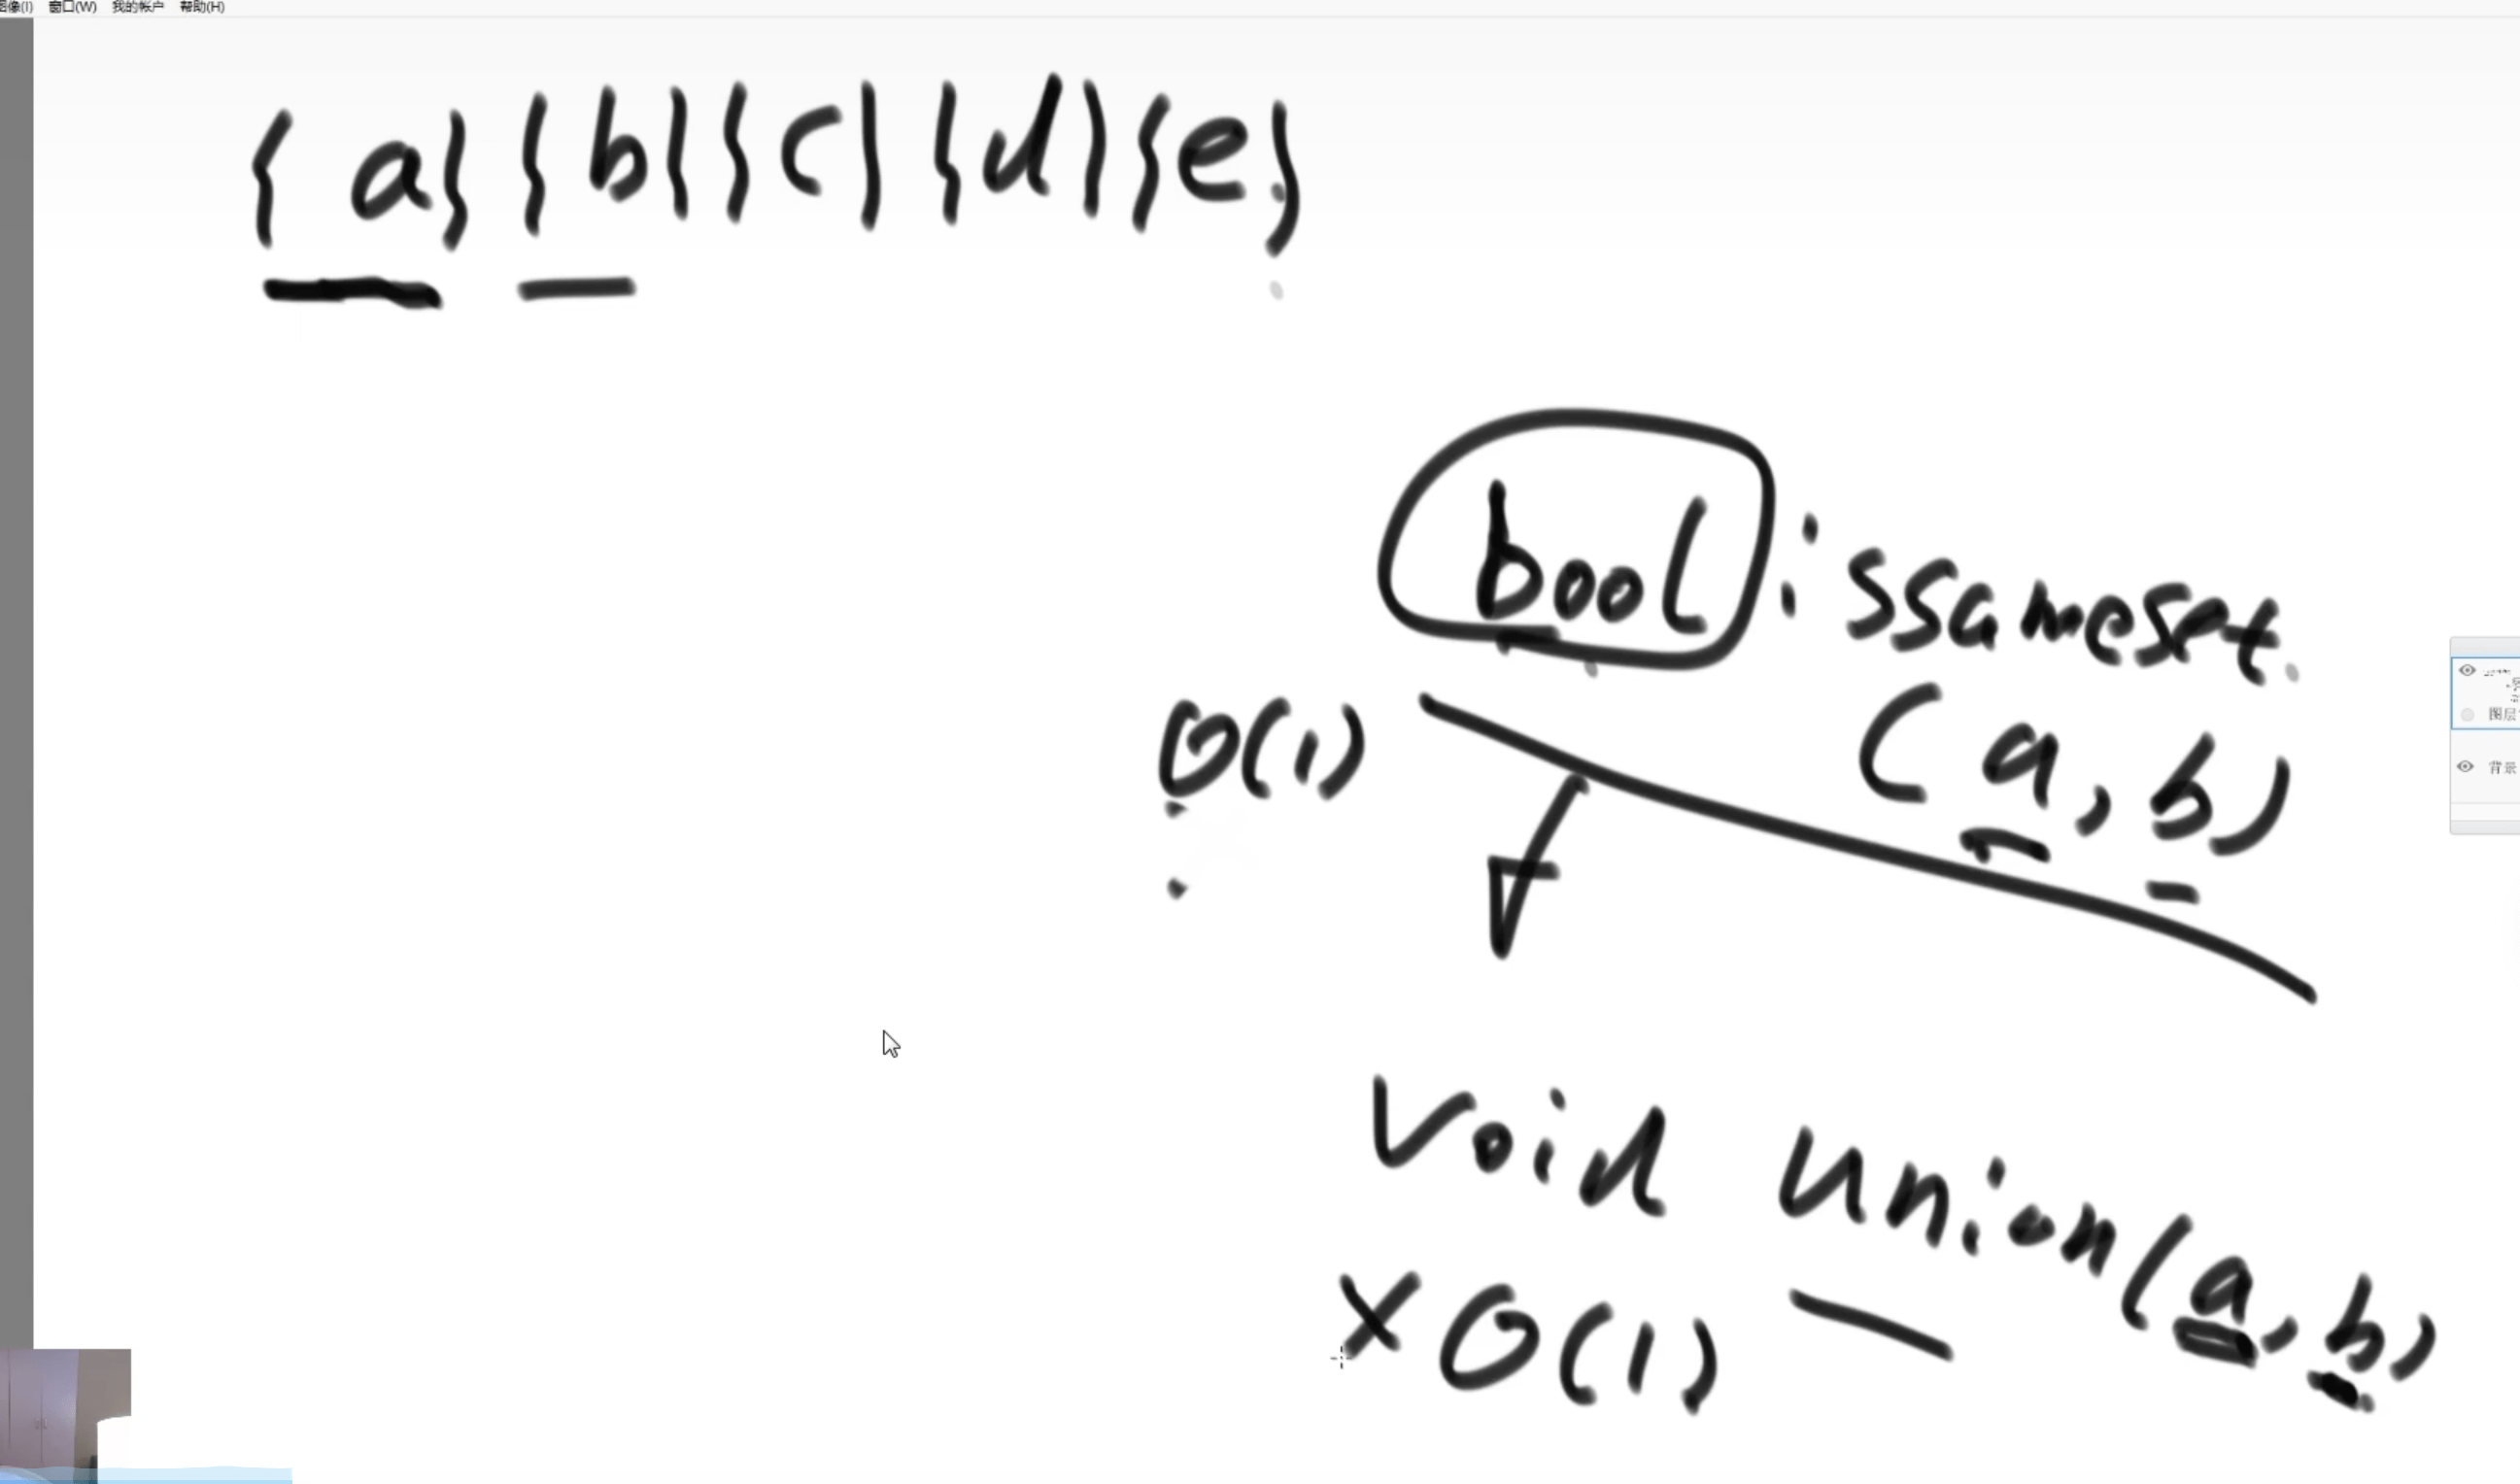 图像(I) 窗口(W) 我的帐户 帮助(H)
{a} {b} {c} {d} {e}
bool issameset
(a, b)
O(1)
图层
背景
void union(a, b)
×O(1)